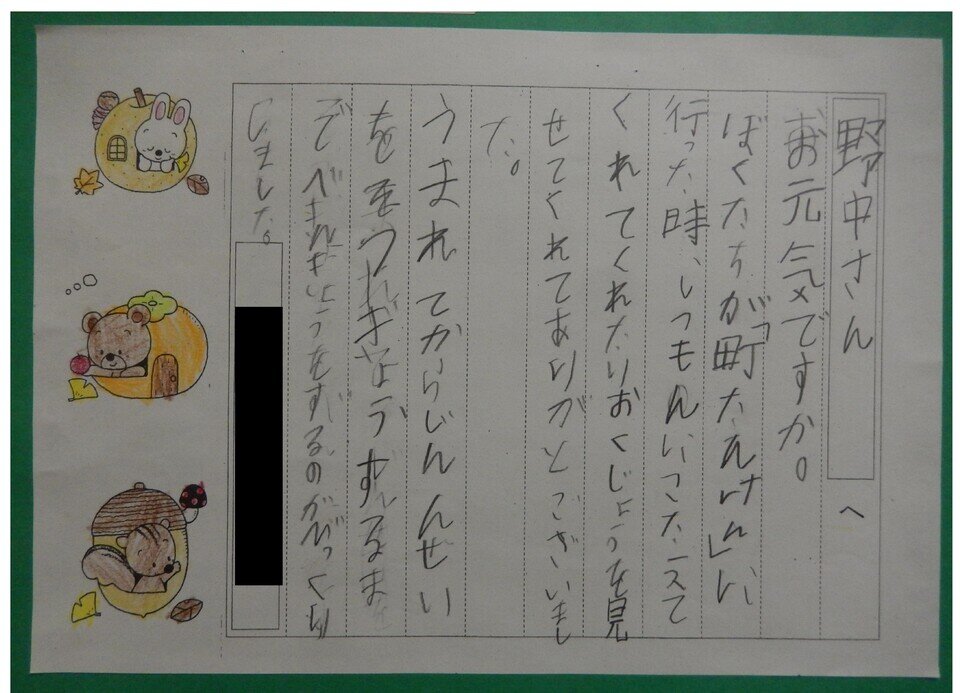 野中さん へ
お元気ですか。
ぼくたちが「町たんけん」に
行った時、しつもんにこたえて
くれてくれたりおくじょうを見
せてくれてありがとございまし
た。
うまれてからじんんせい
を ぎょう するま
で べんきょうをするのがびっくり
しました。